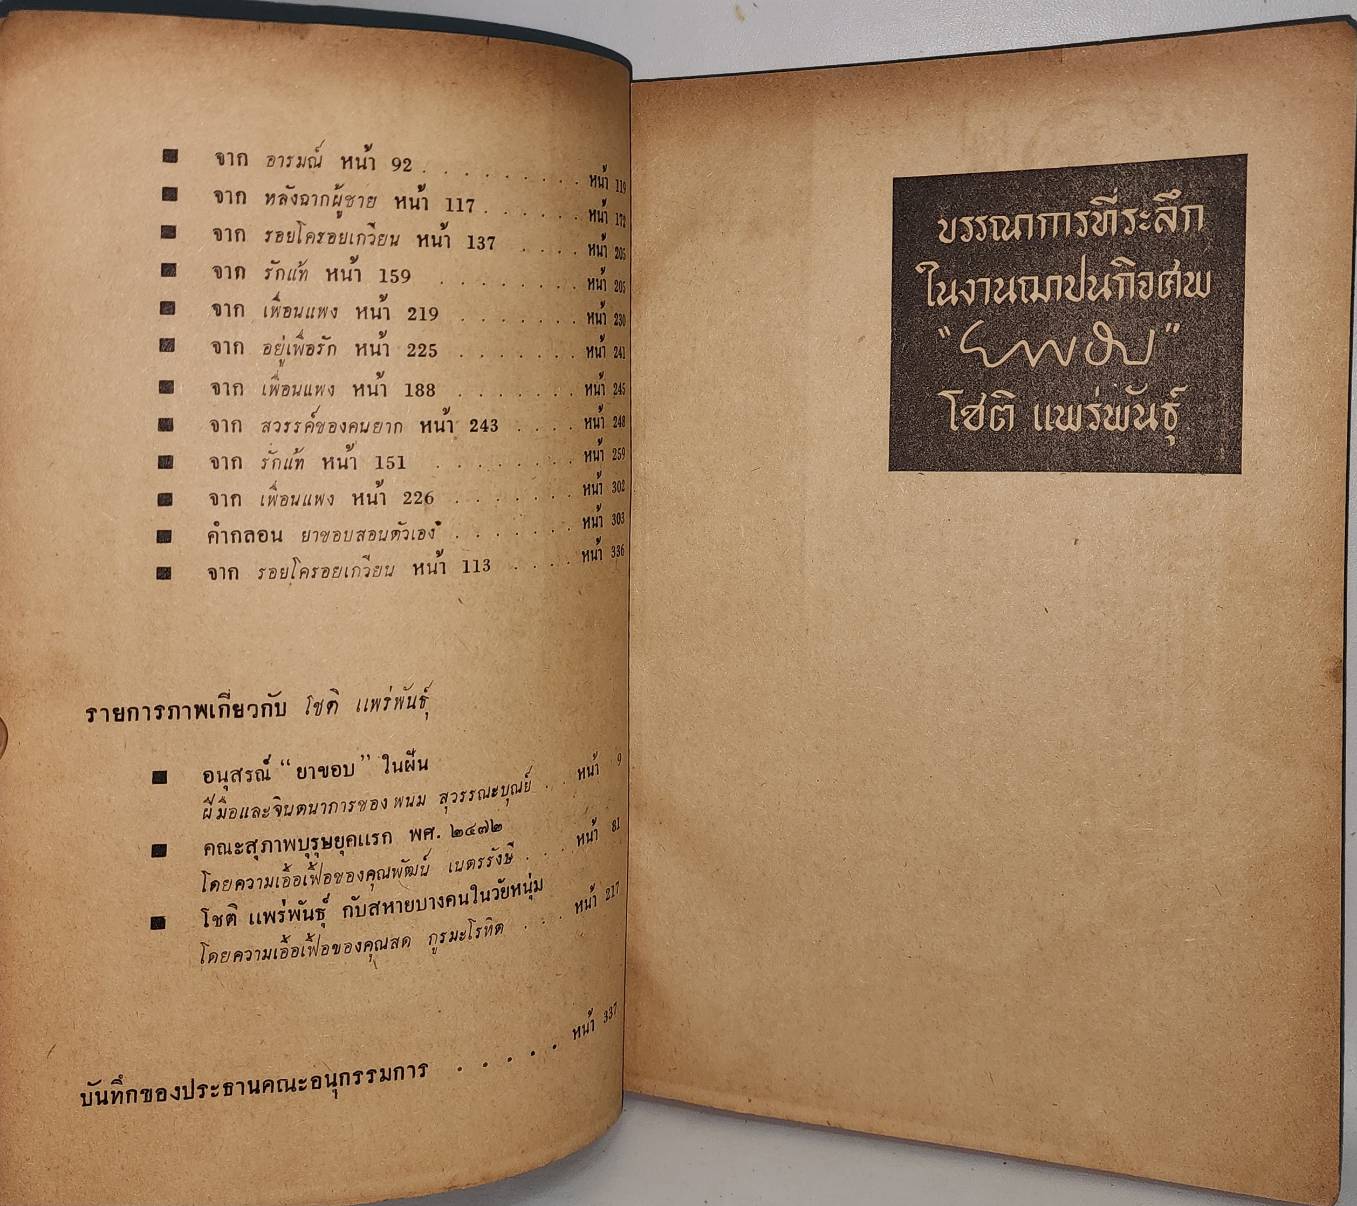 ■ จาก อารมณ์ หน้า 92 . . . . . . . . . หน้า 119
■ จาก หลังฉากผู้ชาย หน้า 117 . . . . . . หน้า 172
■ จาก รอยโครอยเกวียน หน้า 137 . . . . หน้า 205
■ จาก รักแท้ หน้า 159 . . . . . . . . หน้า 205
■ จาก เพื่อนแพง หน้า 219 . . . . . . . หน้า 230
■ จาก อยู่เพื่อรัก หน้า 225 . . . . . . . หน้า 241
■ จาก เพื่อนแพง หน้า 188 . . . . . . . หน้า 245
■ จาก สวรรค์ของคนยาก หน้า 243 . . . . หน้า 248
■ จาก รักแท้ หน้า 151 . . . . . . . . หน้า 259
■ จาก เพื่อนแพง หน้า 226 . . . . . . . หน้า 302
■ คำกลอน ยาขอบสอนตัวเอง . . . . . . . หน้า 303
■ จาก รอยโครอยเกวียน หน้า 113 . . . . หน้า 336
รายการภาพเกี่ยวกับ โชติ แพร่พันธุ์
■ อนุสรณ์ “ยาขอบ” ในฝัน
ฝีมือและจินตนาการของ พนม สุวรรณะบุณย์ . . หน้า 9
■ คณะสุภาพบุรุษยุคแรก พศ. ๒๔๗๒
โดยความเอื้อเฟื้อของคุณพัฒน์ เนตรรังษี . . . หน้า 81
■ โชติ แพร่พันธุ์ กับสหายบางคนในวัยหนุ่ม
โดยความเอื้อเฟื้อของคุณสด กูรมะโรหิต . . . . หน้า 217
บันทึกของประธานคณะอนุกรรมการ . . . . . หน้า 337
บรรณาการที่ระลึก
ในงานฌาปนกิจศพ
“ยาขอบ”
โชติ แพร่พันธุ์